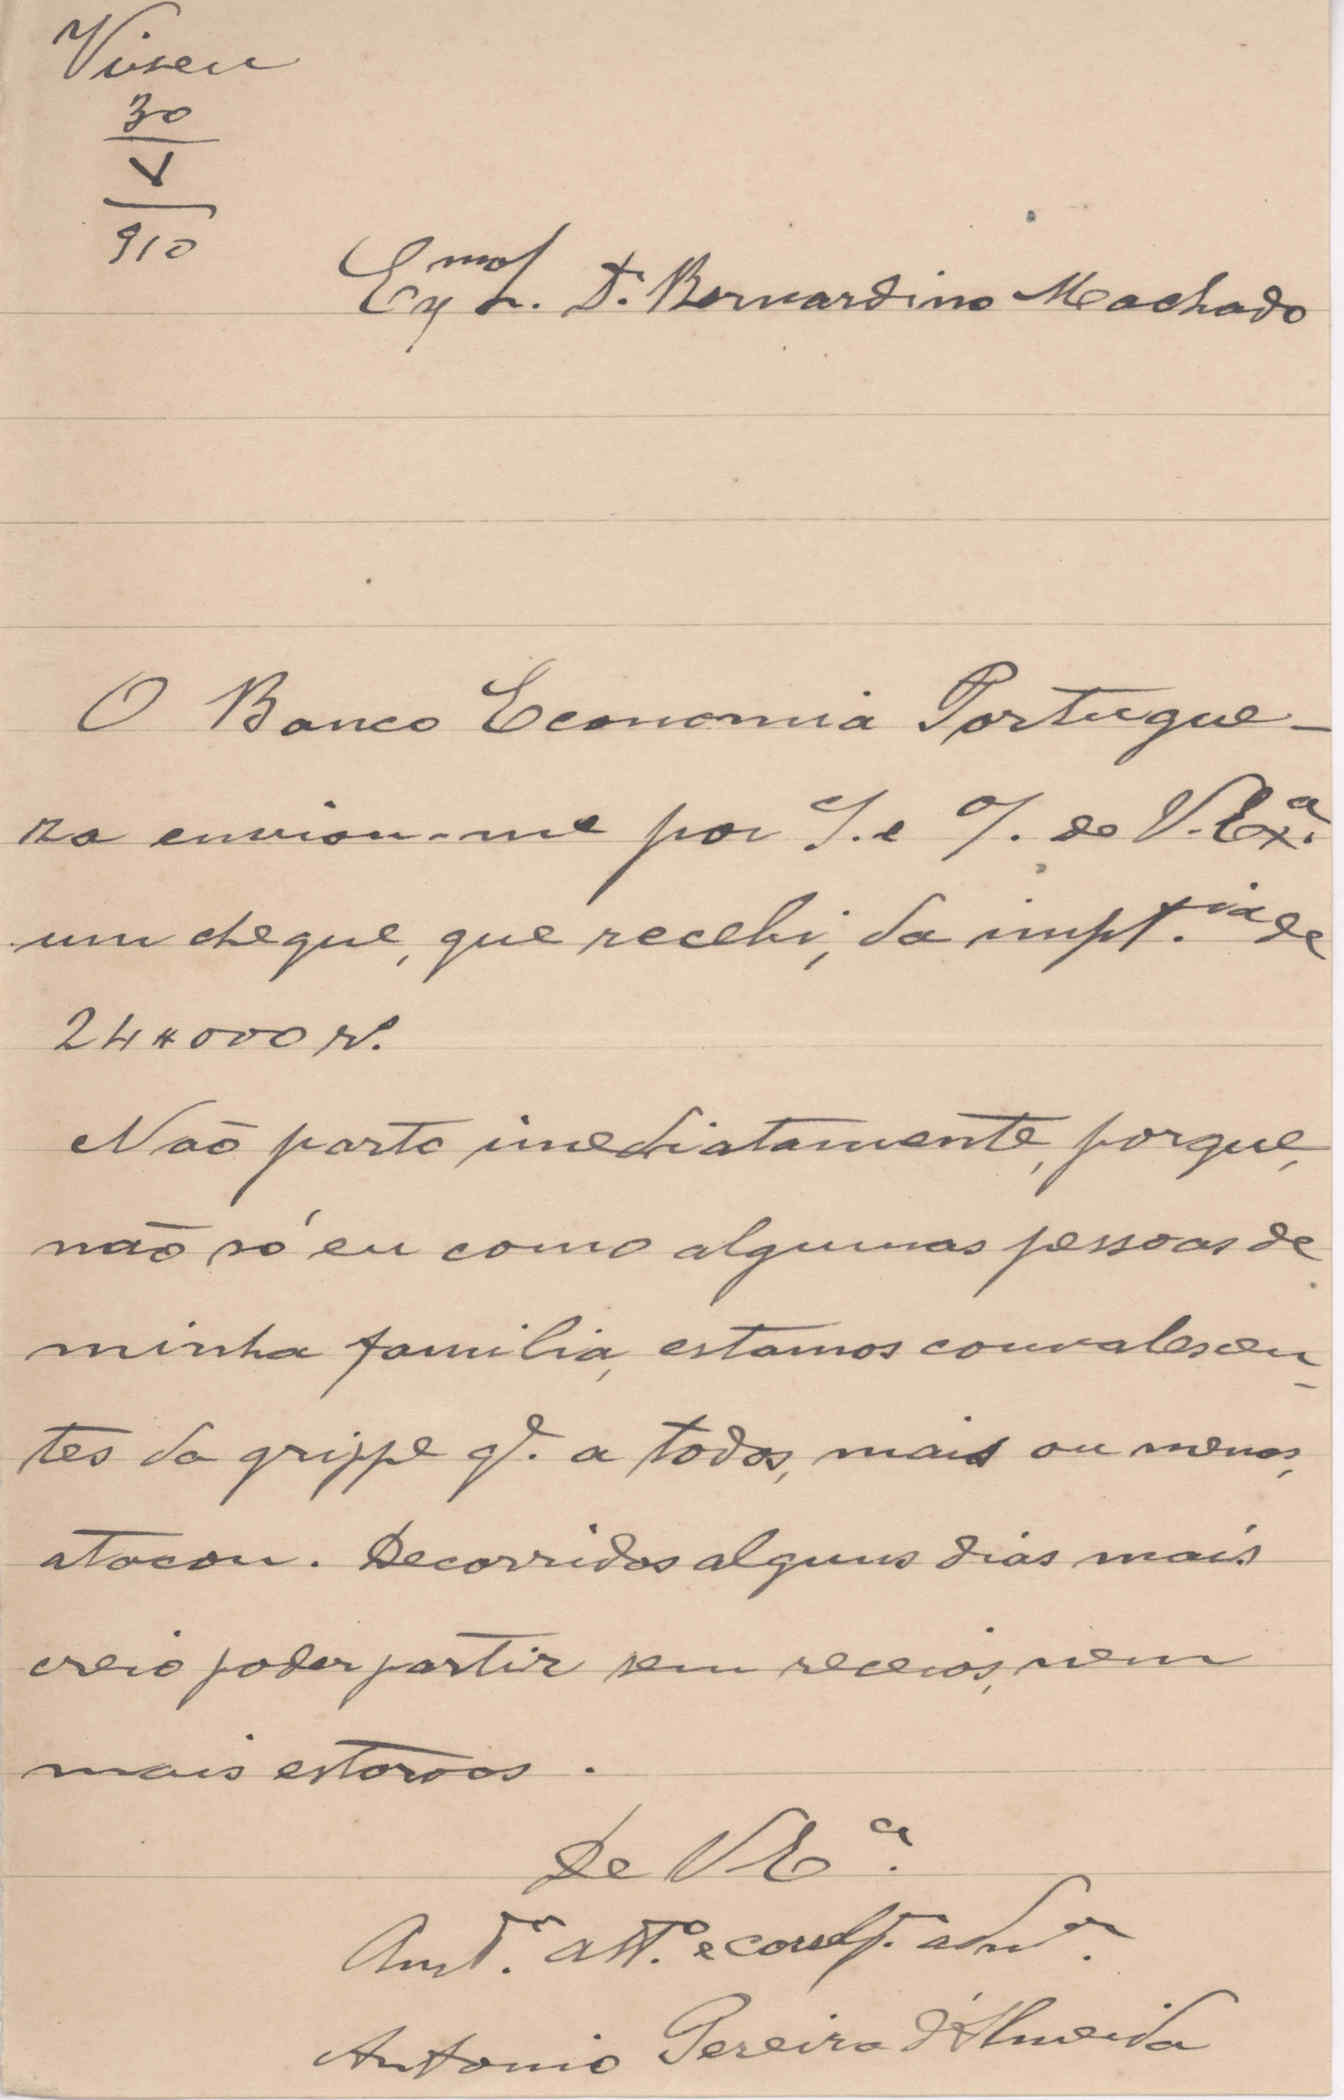 Viseu
30
V
910
Exmo Sr. Dr. Bernardino Machado
O Banco Economia Portugue-
za enviou-me por de V. Exª.
um cheque, que recebi, da impt.cia de
24$000 rs.
Não parto imediatamente, porque,
não só eu como algumas pessoas de
minha familia, estamos convalescen-
tes da grippe q.e a todos, mais ou menos,
atacou. Decorridos alguns dias mais
creio poder partir sem receios, nem
mais estorvos.
De V. Eª.
att.º e
Antonio Pereira d'Almeida